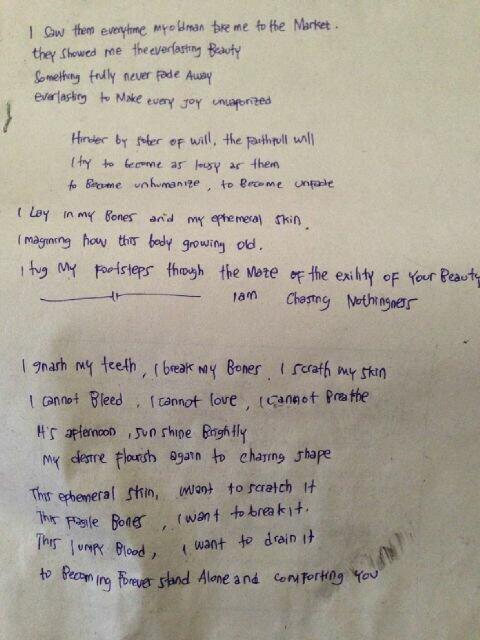 I saw them everytime my oldman take me to the Market.
they showed me the everlasting Beauty
Something trully never fade Away
everlasting to Make every joy unvaporized
Hinder by sober of will, the faithfull will
I try to become as lousy as them
to Become unhumanize, to Become unfade
I Lay in my Bones and my ephemeral skin.
Imagining how this body growing old.
I tug My footsteps through the Maze of the exility of Your Beauty
I am Chasing Nothingness
I gnash my teeth, I break my Bones. I scrath my skin
I cannot Bleed, I cannot love, I cannot Breathe
It's afternoon, sun shine Brightly
My desire flourish again to chasing shape
This ephemeral skin, I want to scratch it
This fragile Bones, I want to break it.
This lumpy Blood, I want to drain it
to Becoming Forever stand Alone and comforting You